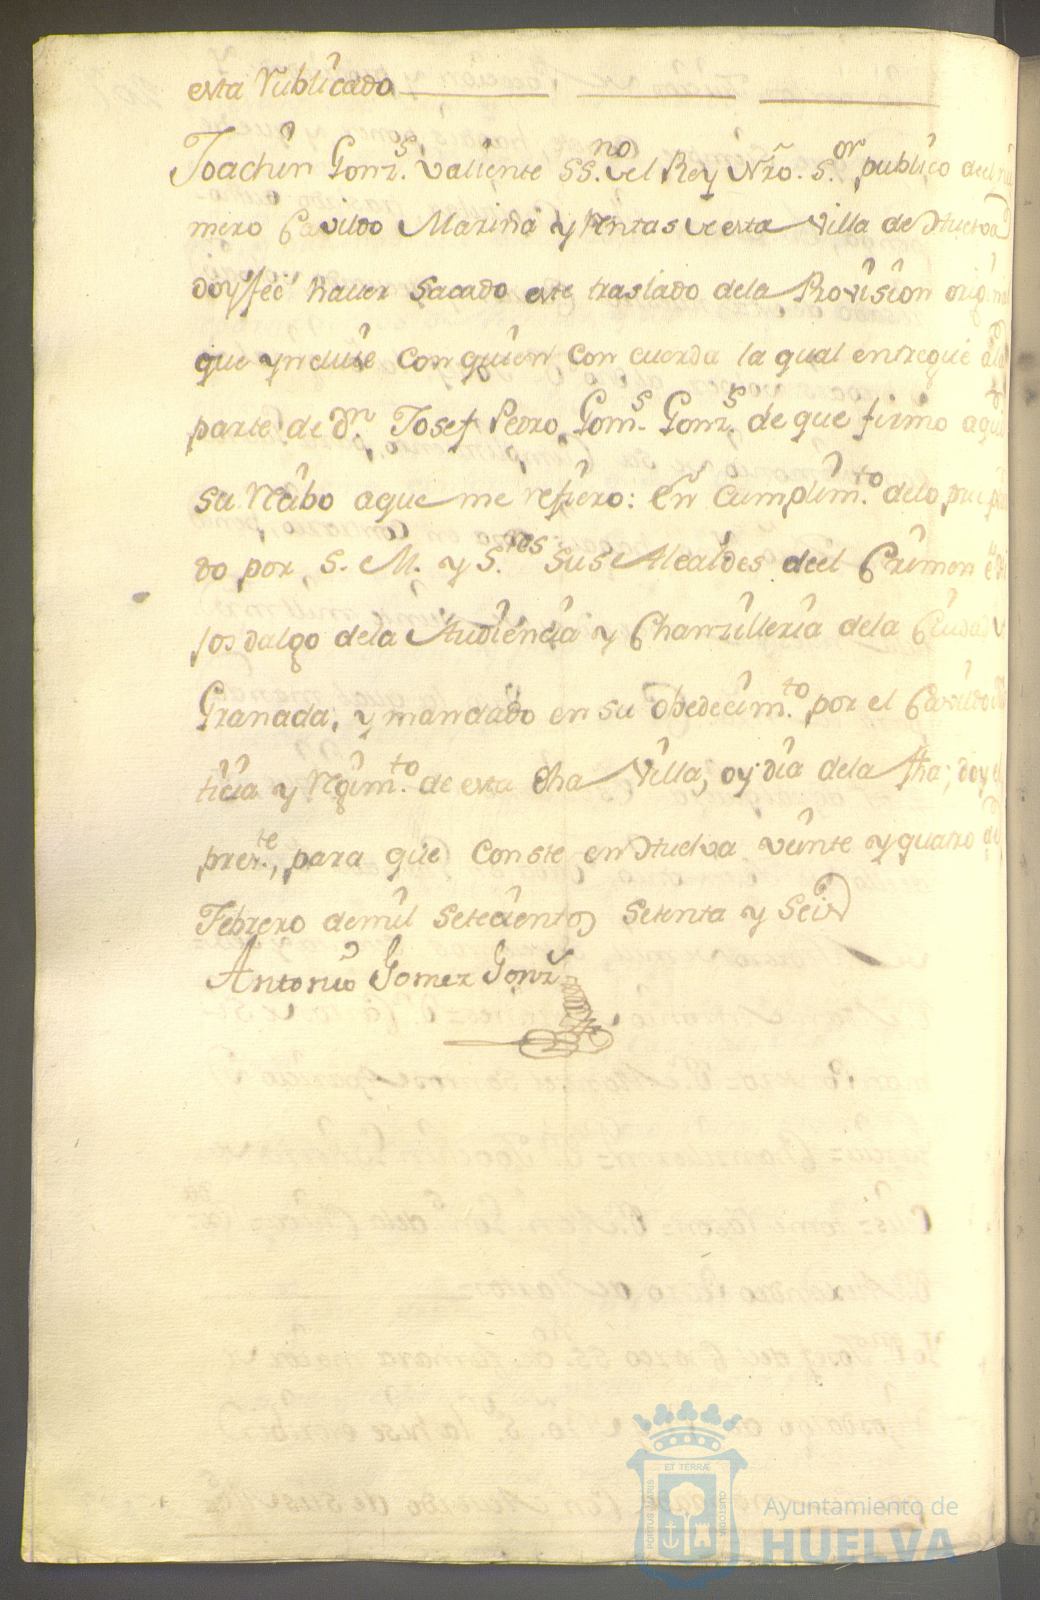 esta Rublicado
Joachin Gonz.s Valiente SS.no del Rey Nro. S.or publico deel nu
mero Cavildo Marina y Rentas de esta Villa de Huelva
doy feé haver sacado este traslado dela Provision original
que ynclute con quien con cuerda la qual entregué ala
parte de Dn. Josef Pedro Gom.s Gonz.s de que firmó aqui
su Recibo aque me refiero: En Cumplim.to delo
do por S. M. y S.res sus Alcaldes deel Crimen é
jos dalgo dela Audiencia y Chanzilleria dela Ciudad
Granada, y mandado en su obedecim.to por el Cavildo
ticia y Regim.to de esta dha Villa, oy dia dela fha; doy el
pres.te, para que conste en Huelva veinte y quatro de
Febrero demil setecientos setenta y seis
Antonio Gomez Gonz
PORTUS MARIS
ET TERRÆ
CUSTODIA
Ayuntamiento de
HUELVA